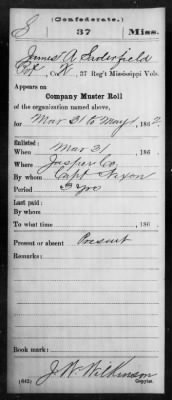 (Confederate.)
S 37 Miss.
James A Suderfield
Pvt, Co. K, 37 Reg't Mississippi Vols.
Appears on
Company Muster Roll
of the organization named above,
for Mar 31 to May 1, 1862.
Enlisted:
When Mar 31, 186
Where Jasper Co.
By whom Capt Nixon
Period 3 yrs
Last paid:
By whom
To what time , 186
Present or absent Present
Remarks:
Book mark:
J. W. Wilkinson
(642) Copyist.